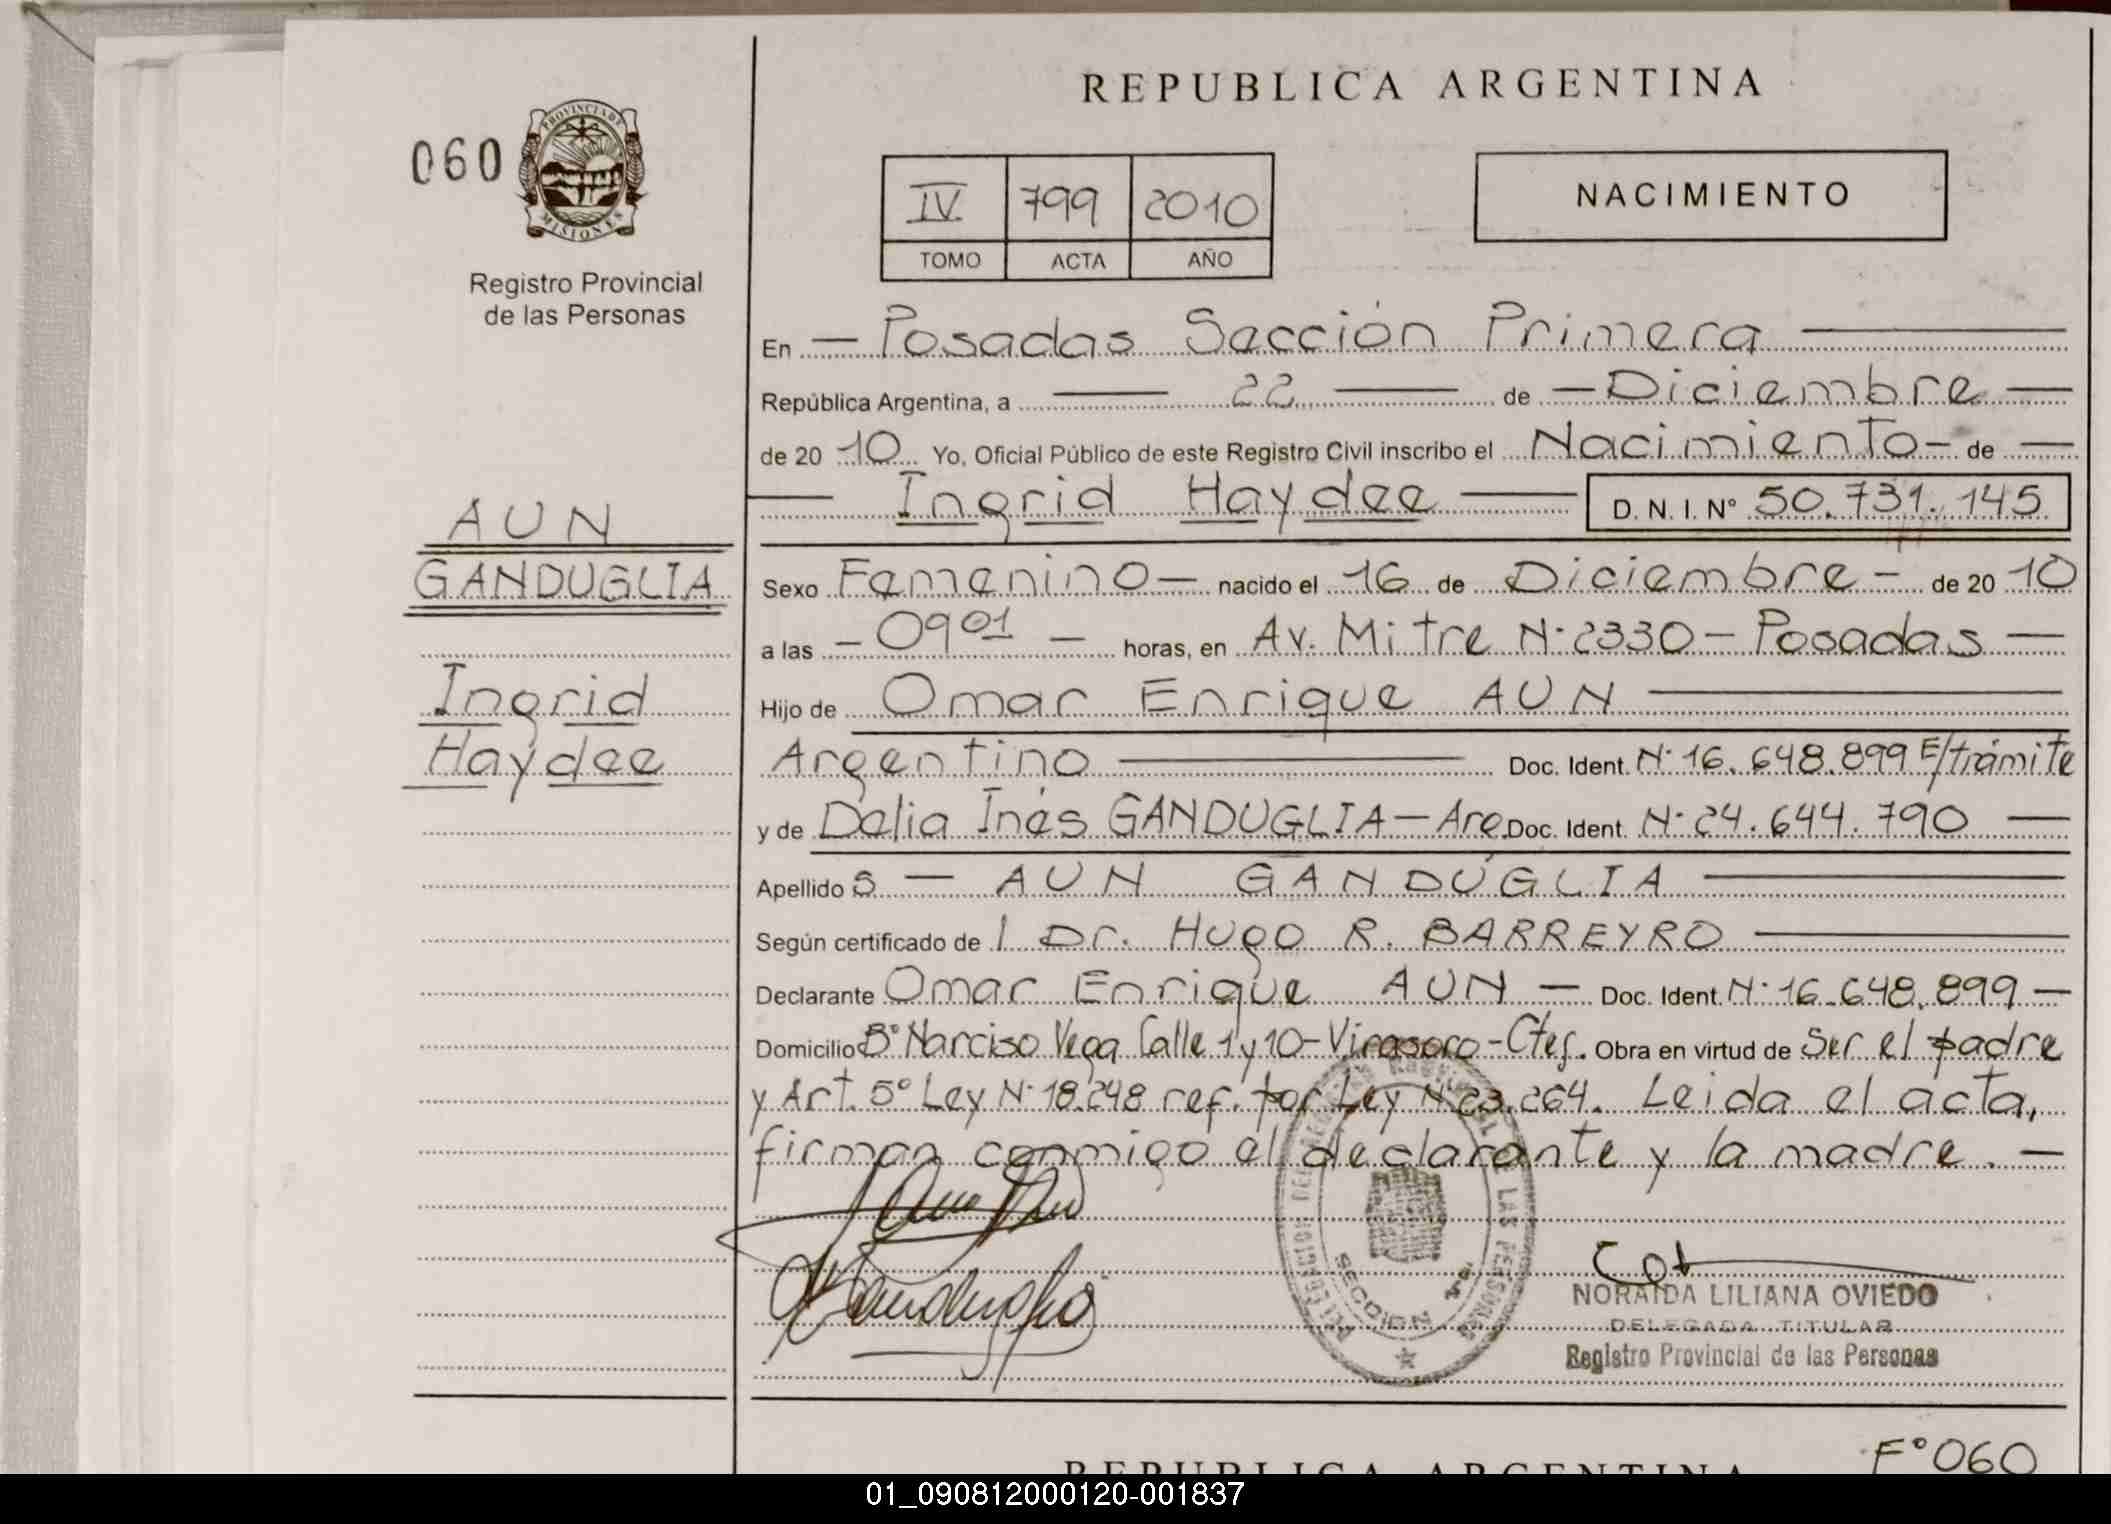 REPUBLICA ARGENTINA
060
PROVINCIA DE
MISIONES
Registro Provincial
de las Personas
IV 799 2010
TOMO ACTA AÑO
NACIMIENTO
En — Posadas Sección Primera —
República Argentina, a — 22 — de — Diciembre —
de 20 10 Yo, Oficial Público de este Registro Civil inscribo el Nacimiento — de —
— Ingrid Haydee — D. N. I. Nº 50.731.145
AUN
GANDUGLIA
Ingrid
Haydee
Sexo Femenino — nacido el 16 de Diciembre — de 20 10
a las — 09 01 — horas, en Av. Mitre Nº 2330 — Posadas —
Hijo de Omar Enrique AUN —
Argentino — Doc. Ident. Nº 16.648.899 E/trámite
y de Delia Inés GANDUGLIA — Arg. Doc. Ident. Nº 24.644.790 —
Apellido s — AUN GANDUGLIA —
Según certificado de l Dr. Hugo R. BARREYRO —
Declarante Omar Enrique AUN — Doc. Ident. Nº 16.648.899 —
Domicilio Bº Narciso Vega Calle 1 y 10 - Virasoro - Ctes. Obra en virtud de Ser el padre
y Art. 5º Ley Nº 18.248 ref. por Ley Nº 23.264. Leida el acta,
firman conmigo el declarante y la madre. —
SECCION 1ra.
NORAIDA LILIANA OVIEDO
DELEGADA TITULAR
Registro Provincial de las Personas
REPUBLICA ARGENTINA
Fº 060
01_090812000120-001837